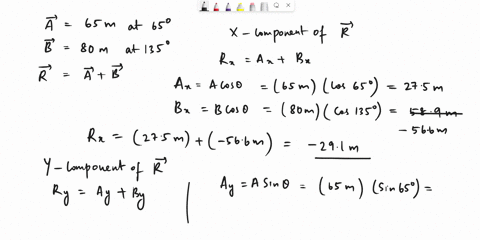 A⃗ = 65 m at 65°
B⃗ = 80 m at 135°
R⃗ = A⃗ + B⃗
X - component of R⃗
Rx = Ax + Bx
Ax = A cosθ = (65 m) (cos 65°) = 27.5 m
Bx = B cosθ = (80m) (cos 135°) =
-56.6 m
Rx = (27.5 m) + (-56.6 m) = -29.1 m
Y - component of R⃗
Ry = Ay + By
Ay = A Sinθ = (65 m) (sin 65°) =